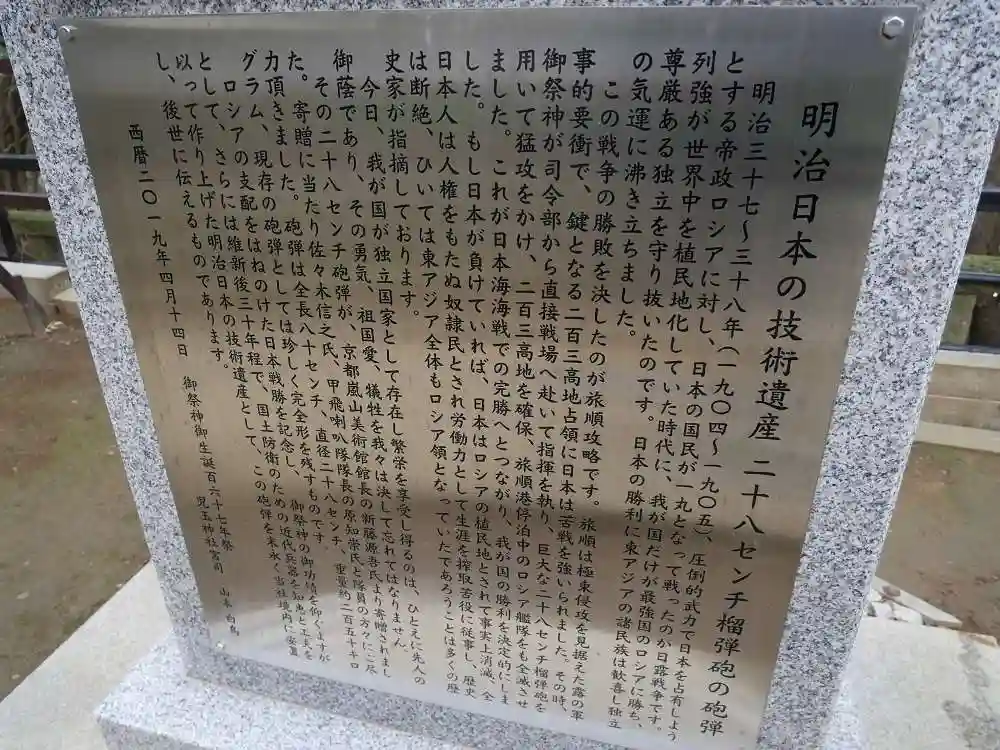 明治日本の技術遺産 二十八センチ榴弾砲の砲弾
明治三十七〜三十八年(一九〇四〜一九〇五)、圧倒的武力で日本を占有しよう
とする帝政ロシアに対し、日本の国民が一丸となって戦ったのが日露戦争です。
列強が世界中を植民地化していた時代に、我が国だけが最強国のロシアに勝ち、
尊厳ある独立を守り抜いたのです。日本の勝利に東アジアの諸民族は歓喜し独立
の気運に沸き立ちました。
この戦争の勝敗を決したのが旅順攻略です。旅順は極東侵攻を見据えた露の軍
事的要衝で、鍵となる二百三高地占領に日本は苦戦を強いられました。その時、
御祭神が司令部から直接戦場へ赴いて指揮を執り、巨大な二十八センチ榴弾砲を
用いて猛攻をかけ、二百三高地を確保、旅順港停泊中のロシア艦隊をも全滅させ
ました。これが日本海海戦での完勝へとつながり、我が国の勝利を決定的にしま
した。もし日本が負けていれば、日本はロシアの植民地とされて事実上消滅、全
日本人は人権をもたぬ奴隷民とされ労働力として生涯を搾取苦役に従事し、歴史
は断絶、ひいては東アジア全体もロシア領となっていたであろうことは多くの歴
史家が指摘しております。
今日、我が国が独立国家として存在し繁栄を享受し得るのは、ひとえに先人の
御蔭であり、その勇気、祖国愛、犠牲を我々は決して忘れてはなりません。
その二十八センチ砲弾が、京都嵐山美術館館長の新藤源吾氏より寄贈されまし
た。寄贈に当たり佐々木信之氏、甲飛喇叭隊隊長の原知崇氏と隊員の方々にご尽
力頂きました。砲弾は全長八十センチ、直径二十八センチ、重量約二百五十キロ
グラム、現存の砲弾としては珍しく完全形を残すものです。
ロシアの支配をはねのけた日本戦勝を記念し、御祭神の御功績を仰ぐよすが
として、さらには維新後三十年程で、国土防衛のための近代兵器を知恵と工夫を
以って作り上げた明治日本の技術遺産として、この砲弾を末永く当社境内に安置
し、後世に伝えるものであります。
西暦二〇一九年四月十四日 御祭神御生誕百六十七年祭
児玉神社宮司 山本白鳥